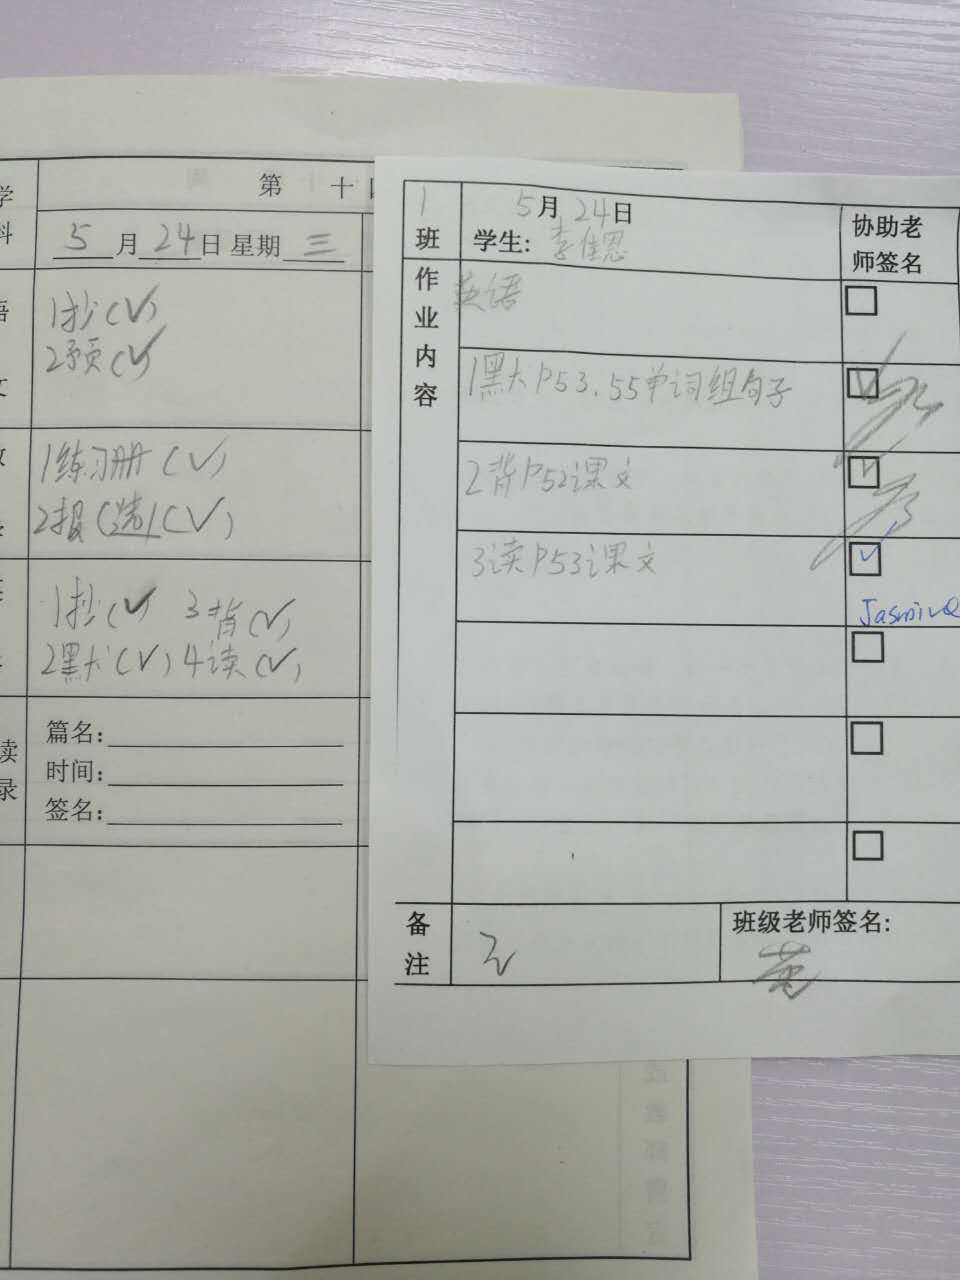 学
科
第 十
5月24日 星期三
语
文
1抄(✓)
2预(✓)
数
1练习册(✓)
2报(选)(✓)
1抄(✓) 3背(✓)
2默(✓) 4读(✓)
读
录
篇名:
时间:
签名:
1
班
5月24日
学生: 李佳恩
协助老
师签名
作
业
内
容
英语
1默P53.55单词组句子
2背P52课文
3读P53课文
Jasmine
备
注
无
班级老师签名: